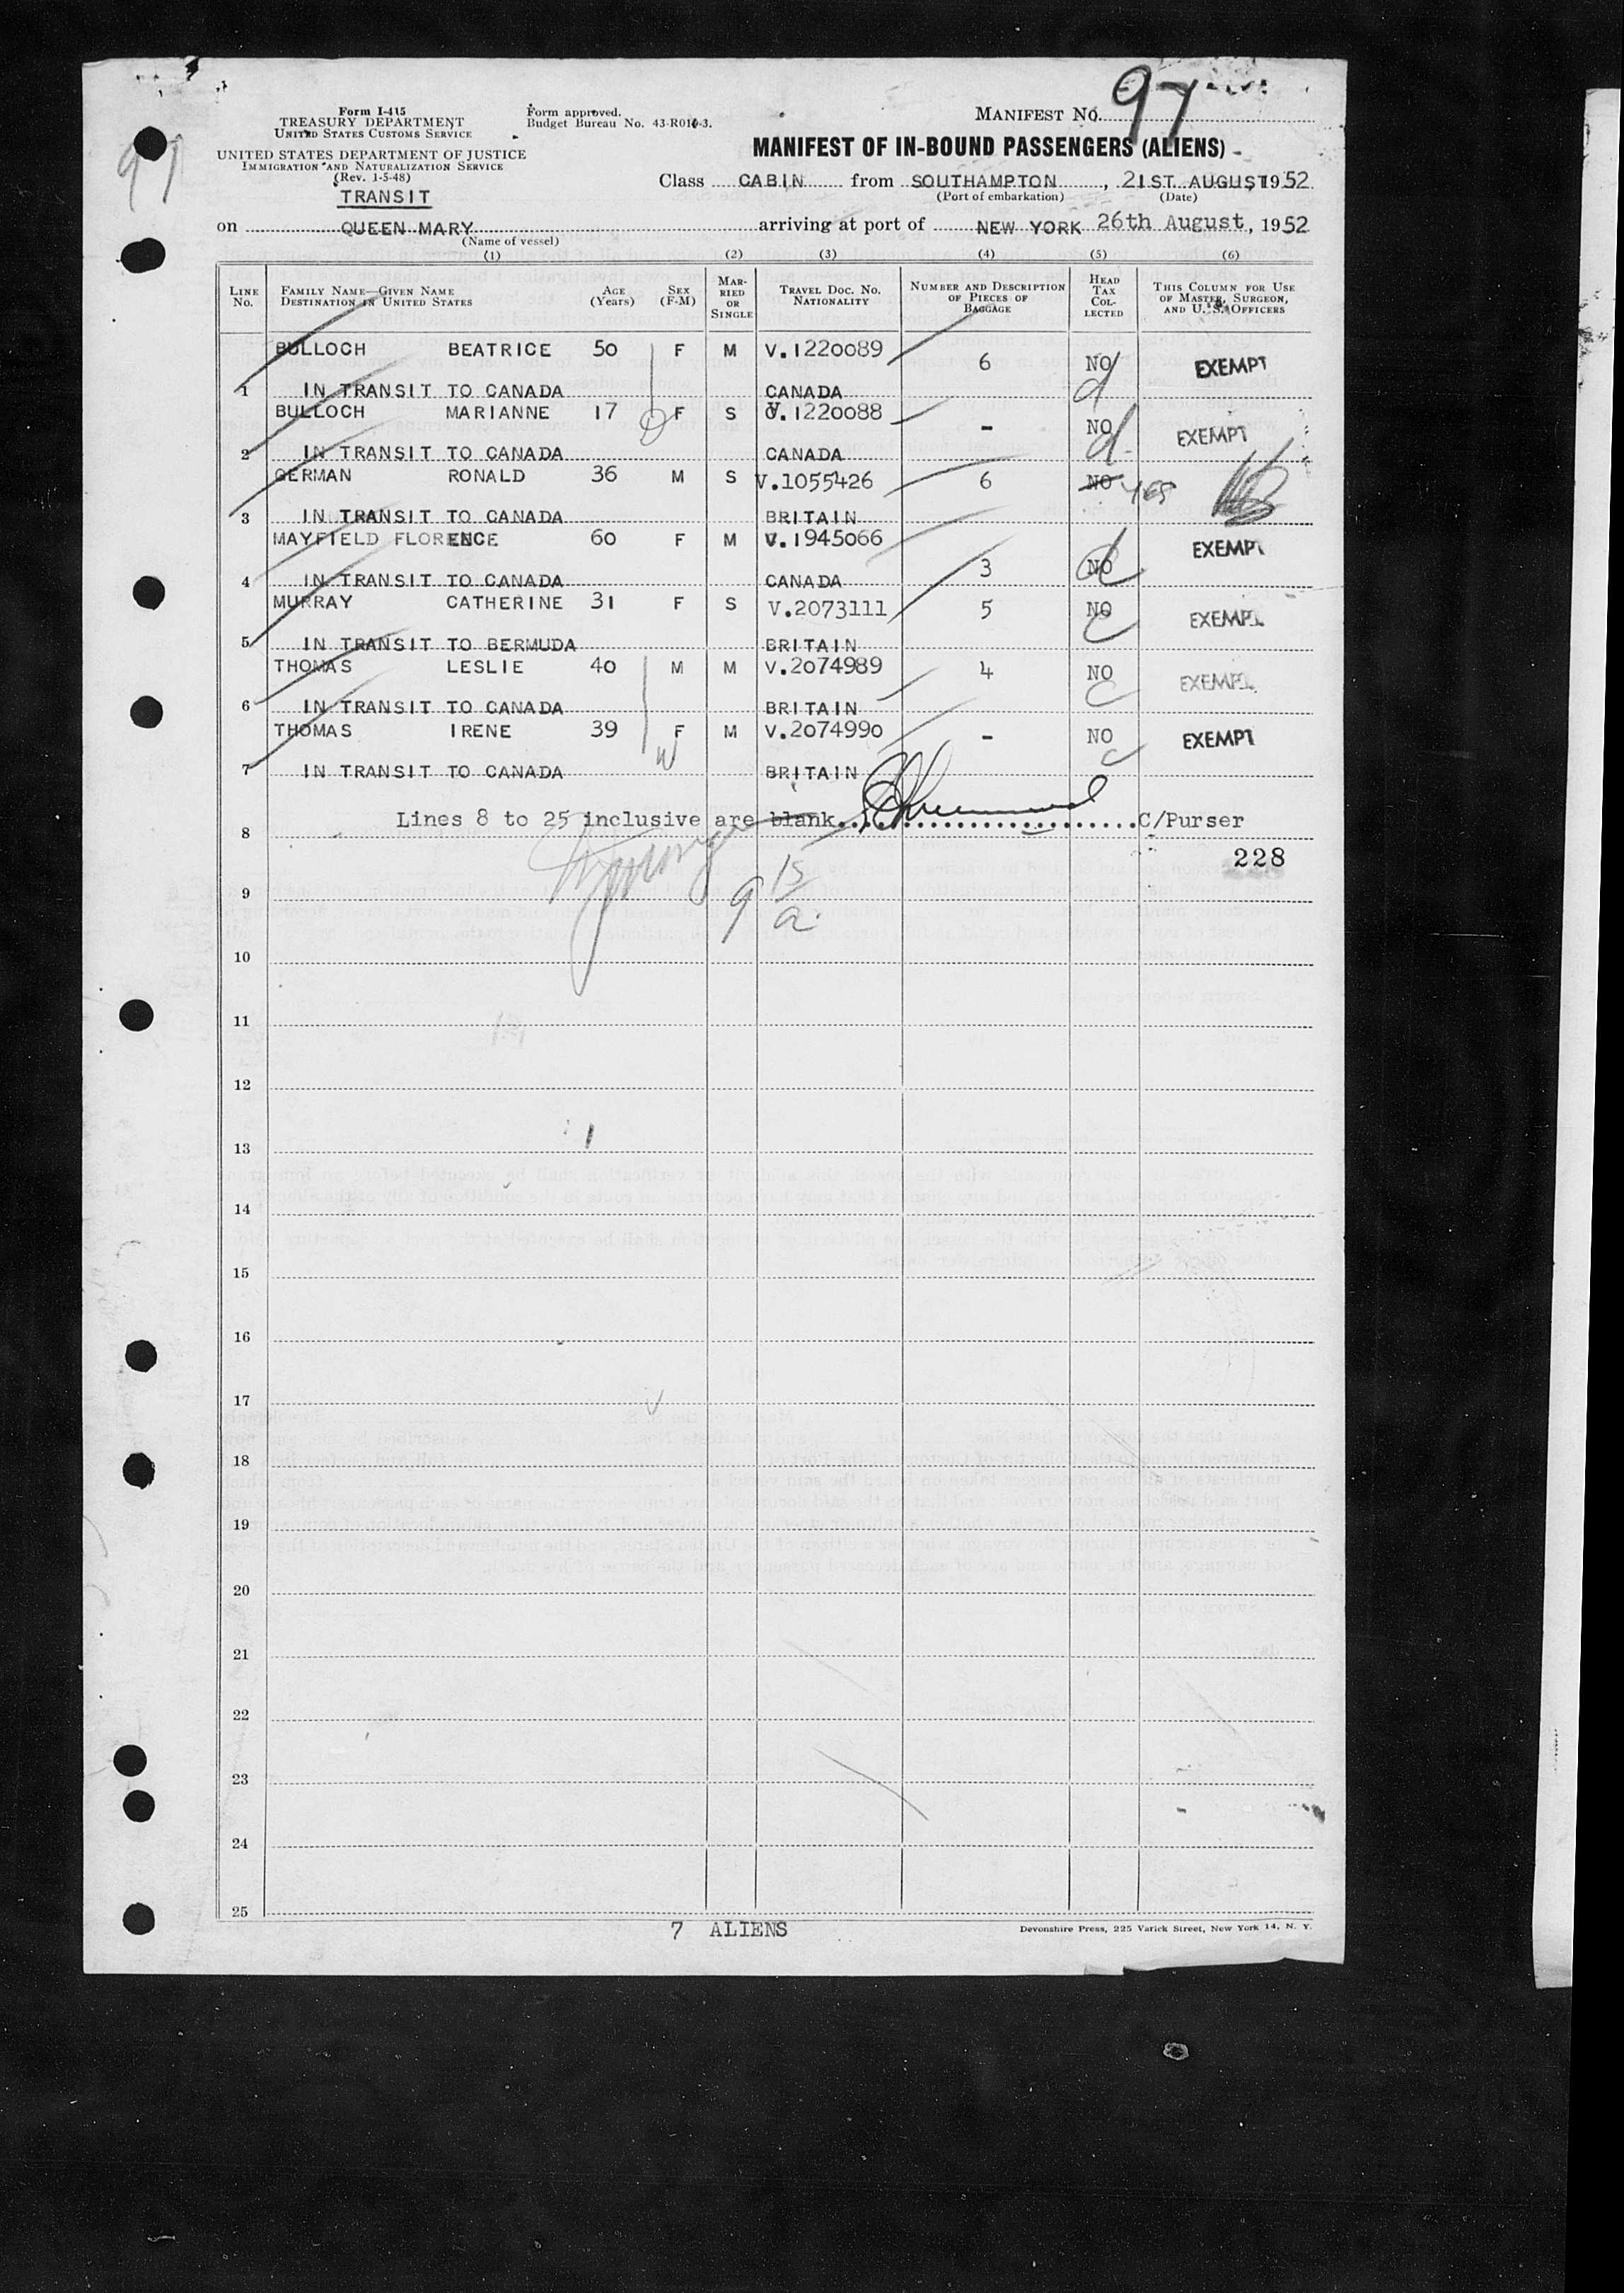 97
Form I-415
TREASURY DEPARTMENT
UNITED STATES CUSTOMS SERVICE
Form approved.
Budget Bureau No. 43-R010-3.
MANIFEST NO. 97
UNITED STATES DEPARTMENT OF JUSTICE
IMMIGRATION AND NATURALIZATION SERVICE
(Rev. 1-5-48)
TRANSIT
MANIFEST OF IN-BOUND PASSENGERS (ALIENS)
Class CABIN from SOUTHAMPTON, 21ST AUGUST 1952
(Port of embarkation) (Date)
on QUEEN MARY arriving at port of NEW YORK 26th August, 1952
(Name of vessel)
(1) (2) (3) (4) (5) (6)
LINE No. FAMILY NAME—GIVEN NAME DESTINATION IN UNITED STATES AGE (Years) SEX (F-M) MARRIED OR SINGLE TRAVEL DOC. NO. NATIONALITY NUMBER AND DESCRIPTION OF PIECES OF BAGGAGE HEAD TAX COLLECTED THIS COLUMN FOR USE OF MASTER, SURGEON, AND U. S. OFFICERS
BULLOCH BEATRICE 50 F M V.1220089 6 NO EXEMPT
1 IN TRANSIT TO CANADA CANADA
BULLOCH MARIANNE 17 F S V.1220088 - NO EXEMPT
2 IN TRANSIT TO CANADA CANADA
GERMAN RONALD 36 M S V.1055426 6 NO yes
3 IN TRANSIT TO CANADA BRITAIN
MAYFIELD FLORENCE 60 F M V.1945066 3 NO EXEMPT
4 IN TRANSIT TO CANADA CANADA
MURRAY CATHERINE 31 F S V.2073111 5 NO EXEMPT
5 IN TRANSIT TO BERMUDA BRITAIN
THOMAS LESLIE 40 M M V.2074989 4 NO EXEMPT
6 IN TRANSIT TO CANADA BRITAIN
THOMAS IRENE 39 F M V.2074990 - NO EXEMPT
7 IN TRANSIT TO CANADA BRITAIN
8 Lines 8 to 25 inclusive are blank. C/Purser
228
9
10
11
12
13
14
15
16
17
18
19
20
21
22
23
24
25
7 ALIENS
Devonshire Press, 225 Varick Street, New York 14, N. Y.